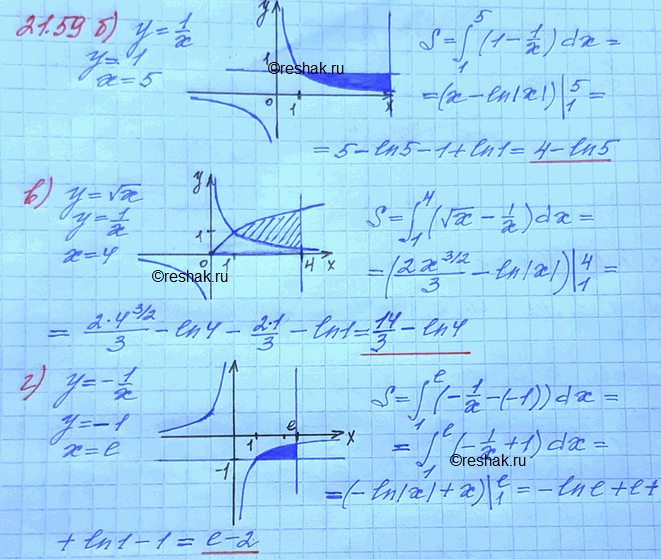 21.59 б) y = 1/x
y = 1
x = 5
y
1
0
1
x
©reshak.ru
S = ∫₁⁵ (1 − 1/x) dx =
= (x − ln|x|) |₁⁵ =
= 5 − ln5 − 1 + ln1 = 4 − ln5
в) y = √x
y = 1/x
x = 4
y
1
0
1
4
x
©reshak.ru
S = ∫₁⁴ (√x − 1/x) dx =
= (2x^(3/2)/3 − ln|x|) |₁⁴ =
= 2·4^(3/2)/3 − ln4 − 2·1/3 − ln1 = 14/3 − ln4
г) y = −1/x
y = −1
x = e
1
e
x
−1
S = ∫₁ᵉ (−1/x − (−1)) dx =
= ∫₁ᵉ (−1/x + 1) dx =
©reshak.ru
= (−ln|x| + x) |₁ᵉ = −lne + e +
+ ln1 − 1 = e − 2